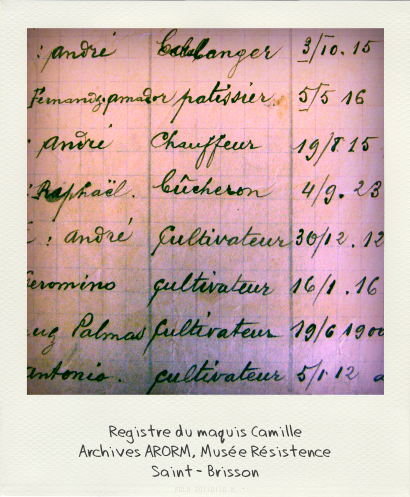 : andré Boulanger 3/10.15
Fernandez amador patissier 5/5 16
: andré Chauffeur 19/8 15
: Raphaël. bûcheron 4/9.23
: andré Cultivateur 30/12.12
eromino cultivateur 16/1.16
Palmas Cultivateur 19/6 190
antonio. cultivateur 5/1.12
Registre du maquis Camille
Archives ARORM, Musée Résistence
Saint-Brisson